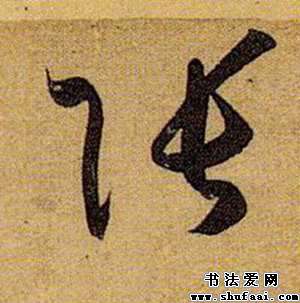 張
书法爱网
www.shufaai.com